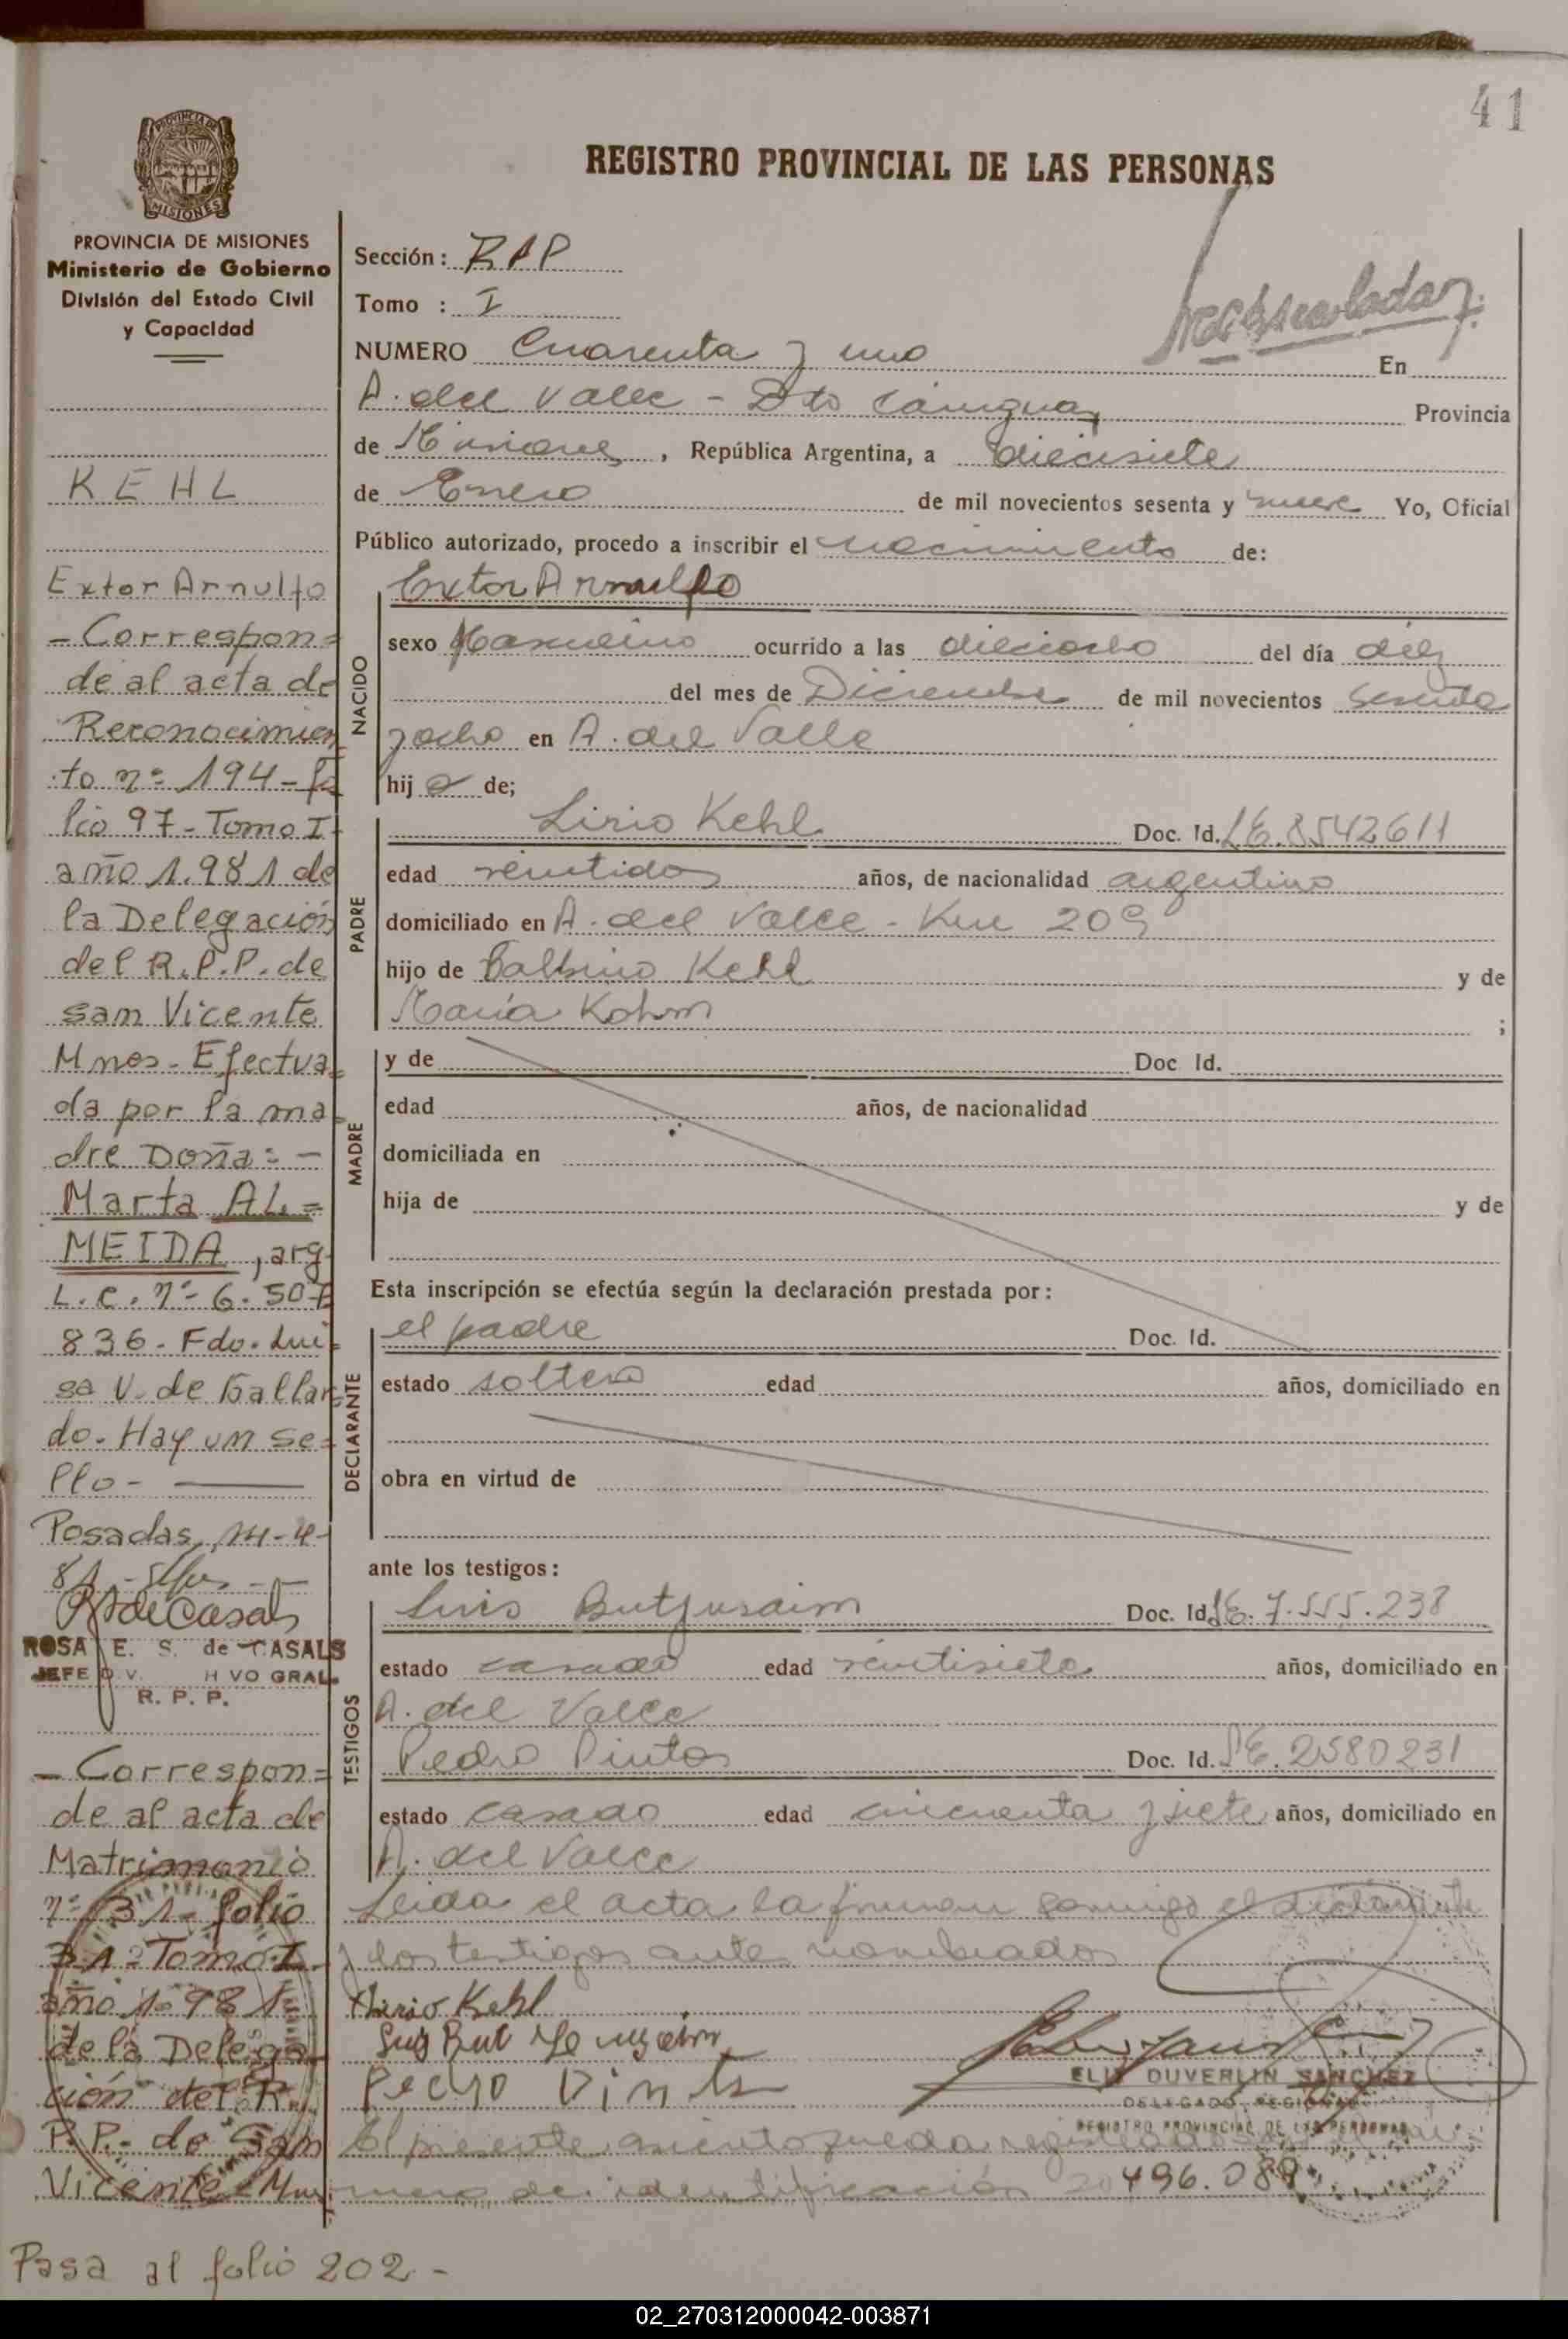 41
REGISTRO PROVINCIAL DE LAS PERSONAS
PROVINCIA DE
MISIONES
PROVINCIA DE MISIONES
Ministerio de Gobierno
División del Estado Civil
y Capacidad
KEHL
Extor Arnulfo
- Correspon=
de al acta de
Reconocimien
to nº 194 - fo
lio 97 - Tomo I -
año 1.981 de
la Delegación
del R.P.P. de
San Vicente
Mnes - Efectua=
da por la ma=
dre Doña: -
Marta AL=
MEIDA, arg
L.C. nº 6.507
836 - Fdo. Lui=
sa V. de Gallar=
do. Hay un se=
llo -
Posadas, 14-4-
81 -
R S de Casals
ROSA E. S. de CASALS
JEFE DIV. H VO GRAL.
R. P. P.
- Correspon=
de al acta de
Matrimonio
nº 31 - folio
31 - Tomo I
año 1.981 -
de la Delega
ción del R.
P.P. - de San
Vicente - Mnes
Pasa al folio 202 -
Sección:
Tomo : I
NUMERO Cuarenta y uno En
A. del Valle - Dto Cainguas Provincia
de Misiones, República Argentina, a diecisiete
de Enero de mil novecientos sesenta y nueve Yo, Oficial
Público autorizado, procedo a inscribir el nacimiento de:
NACIDO
Extor Arnulfo
sexo Masculino ocurrido a las dieciocho del día diez
del mes de Diciembre de mil novecientos sesenta
y ocho en A. del Valle
hij o de;
PADRE
Lirio Kehl Doc. Id. LE. 8542611
edad veintidos años, de nacionalidad argentino
domiciliado en A. del Valle - Km 209
hijo de Balbino Kehl y de
María Kohm ;
MADRE
y de Doc Id.
edad años, de nacionalidad
domiciliada en
hija de y de
Esta inscripción se efectúa según la declaración prestada por:
DECLARANTE
el padre Doc. Id.
estado soltero edad años, domiciliado en
obra en virtud de
ante los testigos:
TESTIGOS
Luis Doc. Id. LE. 7.555.238
estado casado edad veintisiete años, domiciliado en
A. del Valle
Pedro Pintos Doc. Id. LE. 2580231
estado casado edad cincuenta y siete años, domiciliado en
A. del Valle
Leida el acta la firman conmigo el declarante
y los testigos antes nombrados
Lirio Kehl
Pedro Pinto
ELIX DUVERLIN SANCHEZ
DELEGADO REGIONAL
REGISTRO PROVINCIAL DE LAS PERSONAS
El presente asiento queda registrado
mero de identificación 20496.089
02_270312000042-003871